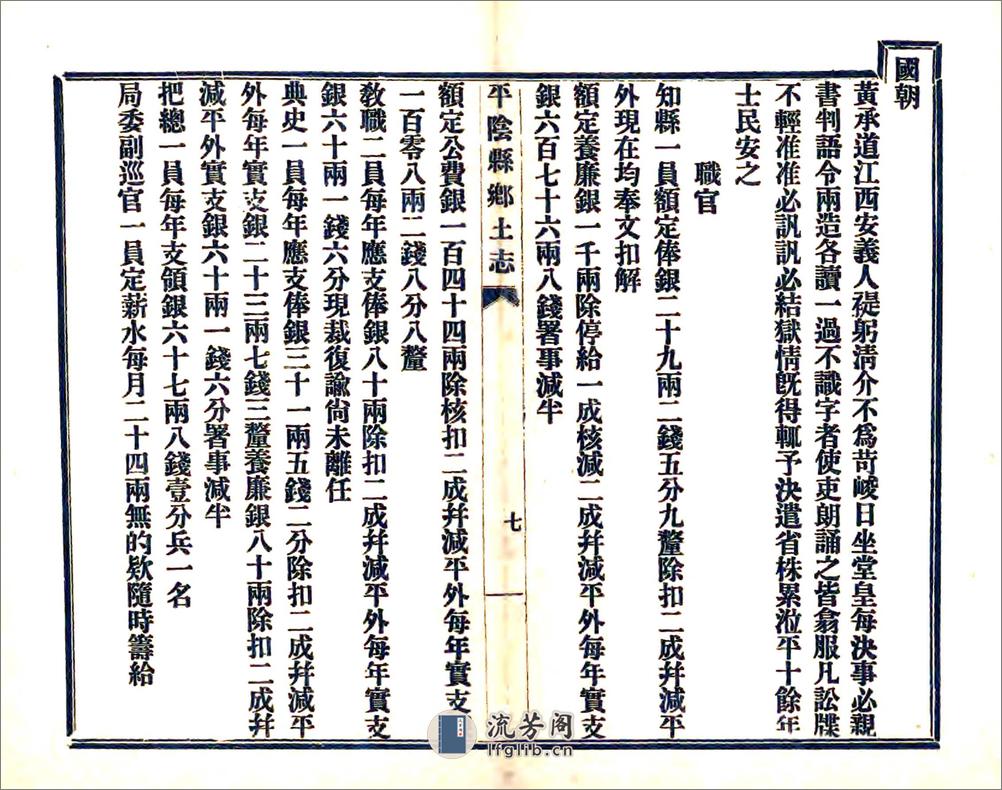 國朝
黃承道江西安義人褆躬清介不爲苛峻日坐堂皇每決事必親
書判語令兩造各讀一過不識字者使吏朗誦之皆翕服凡訟牒
不輕准准必訊訊必結獄情旣得輒予決遣省株累涖平十餘年
士民安之
職官
知縣一員額定俸銀二十九兩二錢五分九釐除扣二成幷減平
外現在均奉文扣解
額定養廉銀一千兩除停給一成核減二成幷減平外每年實支
銀六百七十六兩八錢署事減半
平陰縣鄉土志
七
額定公費銀一百四十四兩除核扣二成幷減平外每年實支
一百零八兩二錢八分八釐
敎職二員每年應支俸銀八十兩除扣二成幷減平外每年實支
銀六十兩一錢六分現裁復諭尙未離任
典史一員每年應支俸銀三十一兩五錢二分除扣二成幷減平
外每年實支銀二十三兩七錢三釐養廉銀八十兩除扣二成幷
減平外實支銀六十兩一錢六分署事減半
把總一員每年支領銀六十七兩八錢壹分兵一名
局委副巡官一員定薪水每月二十四兩無的欵隨時籌給
流芳阁
lfglib.cn